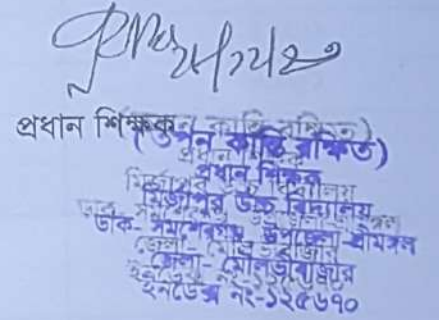 প্রধান শিক্ষক
(তপন কান্তি রক্ষিত)
প্রধান শিক্ষক
মির্জাপুর উচ্চ বিদ্যালয়
ডাক- সমশেরগঞ্জ উপজেলা-শ্রীমঙ্গল
জেলা- মৌলভীবাজার
ইনডেক্স নং-১২৫৬৭০